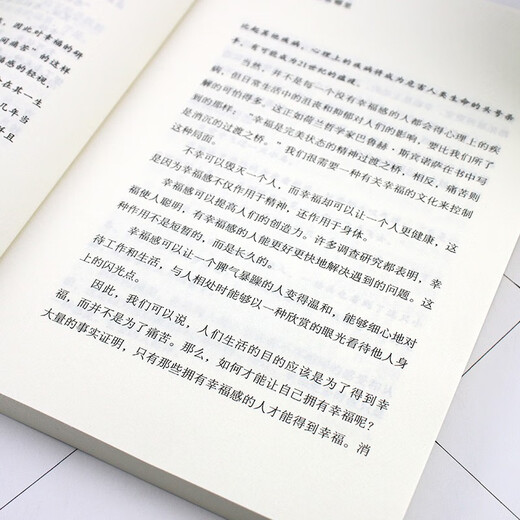 因此对幸福的研
间痛苦”的这样
福感的轻视，
在其一生
几年当
并且
比起其他疾病，心理上的疾病将成为危害人类生命的头号杀
手，更可能成为21世纪的瘟疫。
当然，并不是每一个没有幸福感的人都会得心理上的疾
病，但日常生活中的沮丧和抑郁对人们的影响，要比我们所了
解的可怕得多。这正如荷兰哲学家巴鲁赫·斯宾诺萨在书中写
的那样：“幸福是完美状态的精神过渡之桥。相反，痛苦则
是消沉的过渡之桥。”我们很需要一种有关幸福的文化来控制
这种局面。
不幸可以毁灭一个人，而幸福却可以让一个人更健康，这
是因为幸福感不仅作用于精神，还作用于身体。
幸福感可以提高人们的创造力。许多调查研究都表明，幸
福使人聪明，有幸福感的人能更好更快地解决遇到的问题。这
种作用不是短暂的，而是长久的。
幸福感可以让一个脾气暴躁的人变得温和，能够细心地对
待工作和生活，与人相处时能够以一种欣赏的眼光看待他人身
上的闪光点。
因此，我们可以说，人们生活的目的应该是为了得到幸
福，而并不是为了痛苦。那么，如何才能让自己拥有幸福呢？
大量的事实证明，只有那些拥有幸福感的人才能得到幸福。消